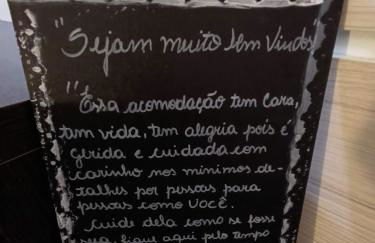 "Sejam muito bem Vindos"
"Essa acomodação tem cara,
tem vida, tem alegria pois é
gerida e cuidada com
carinho nos mínimos de-
talhes por pessoas para
pessoas como VOCÊ.
Cuide dela como se fosse
sua, fique aqui pelo tempo